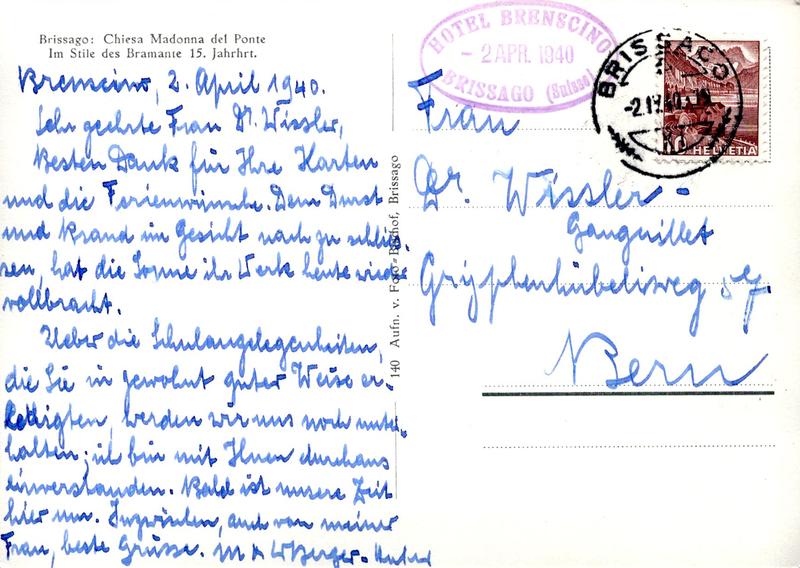 Brissago: Chiesa Madonna del Ponte
Im Stile des Bramante 15. Jahrhrt.
Brenscino, 2. April 1940.
Sehr geehrte Frau Dr. Wissler,
Besten Dank für Ihre Karten
und die Ferienwünsche. Dem Durst
und Brand im Gesicht nach zu schlies-
sen, hat die Sonne ihr Werk heute wieder
vollbracht.
Ueber die Schulangelegenheiten,
die Sie in gewohnt guter Weise er-
ledigten, werden wir uns noch unter-
halten; ich bin mit Ihnen durchaus
einverstanden. Bald ist unsere Zeit
hier um. Inzwischen, auch von meiner
Frau, beste Grüsse.
140 Aufn. v. Foto-Bischof, Brissago
HOTEL BRENSCINO
- 2 APR. 1940
BRISSAGO (Suisse)
BRISSAGO
-2.IV.40.
10
HELVETIA
Frau
Dr. Wissler-
Ganguillet
Gryphenhübeliweg
Bern